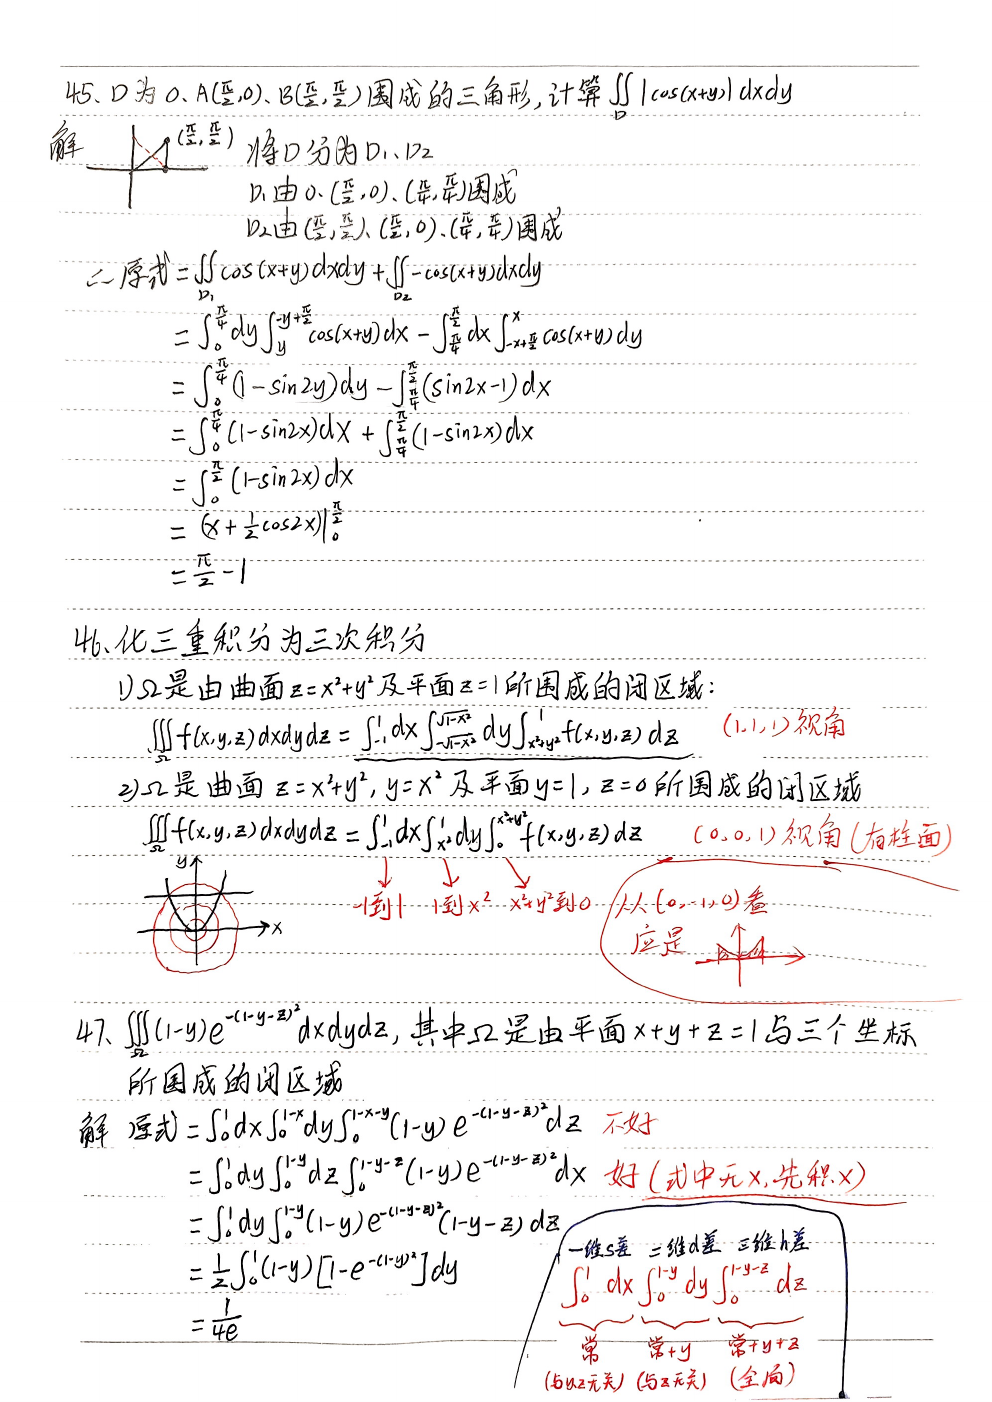 45、D为0、A(π/2,0)、B(π/2,π/2)围成的三角形,计算∬_D |cos(x+y)| dxdy
解 (π/2,π/2) 将D分为D₁、D₂
D₁由0、(π/2,0)、(π/4,π/4)围成
D₂由(π/2,π/2)、(π/2,0)、(π/4,π/4)围成
∴原式=∬_D₁ cos(x+y)dxdy+∬_D₂ -cos(x+y)dxdy
=∫_0^{π/4} dy∫_y^{-y+π/2} cos(x+y)dx-∫_{π/4}^{π/2} dx∫_{-x+π/2}^x cos(x+y)dy
=∫_0^{π/4} (1-sin2y)dy-∫_{π/4}^{π/2} (sin2x-1)dx
=∫_0^{π/4} (1-sin2x)dx+∫_{π/4}^{π/2} (1-sin2x)dx
=∫_0^{π/2} (1-sin2x)dx
=(x+½cos2x)|_0^{π/2}
=π/2-1
46、化三重积分为三次积分
1)Ω是由曲面z=x²+y²及平面z=1所围成的闭区域:
∭_Ω f(x,y,z)dxdydz=∫_{-1}^1 dx∫_{-√(1-x²)}^{√(1-x²)} dy∫_{x²+y²}^1 f(x,y,z)dz (1,1,1)视角
2)Ω是曲面z=x²+y²,y=x²及平面y=1,z=0所围成的闭区域
∭_Ω f(x,y,z)dxdydz=∫_{-1}^1 dx∫_{x²}^1 dy∫_0^{x²+y²} f(x,y,z)dz (0,0,1)视角(有柱面)
y
x
-1到1 1到x² x²+y²到0 从(0,-1,0)看
应是
47、∭_Ω (1-y)e^{-(1-y-z)²}dxdydz,其中Ω是由平面x+y+z=1与三个坐标
所围成的闭区域
解 原式=∫_0^1 dx∫_0^{1-x} dy∫_0^{1-x-y} (1-y)e^{-(1-y-z)²}dz 不好
=∫_0^1 dy∫_0^{1-y} dz∫_0^{1-y-z} (1-y)e^{-(1-y-z)²}dx 好(式中无x,先积x)
=∫_0^1 dy∫_0^{1-y} (1-y)e^{-(1-y-z)²}(1-y-z)dz
=½∫_0^1 (1-y)[1-e^{-(1-y)²}]dy
=1/4e
一维s差 二维d差 三维h差
∫_0^1 dx∫_0^{1-y} dy∫_0^{1-y-z} dz
常 常+y 常+y+z
(与yz无关) (与z无关) (全局)